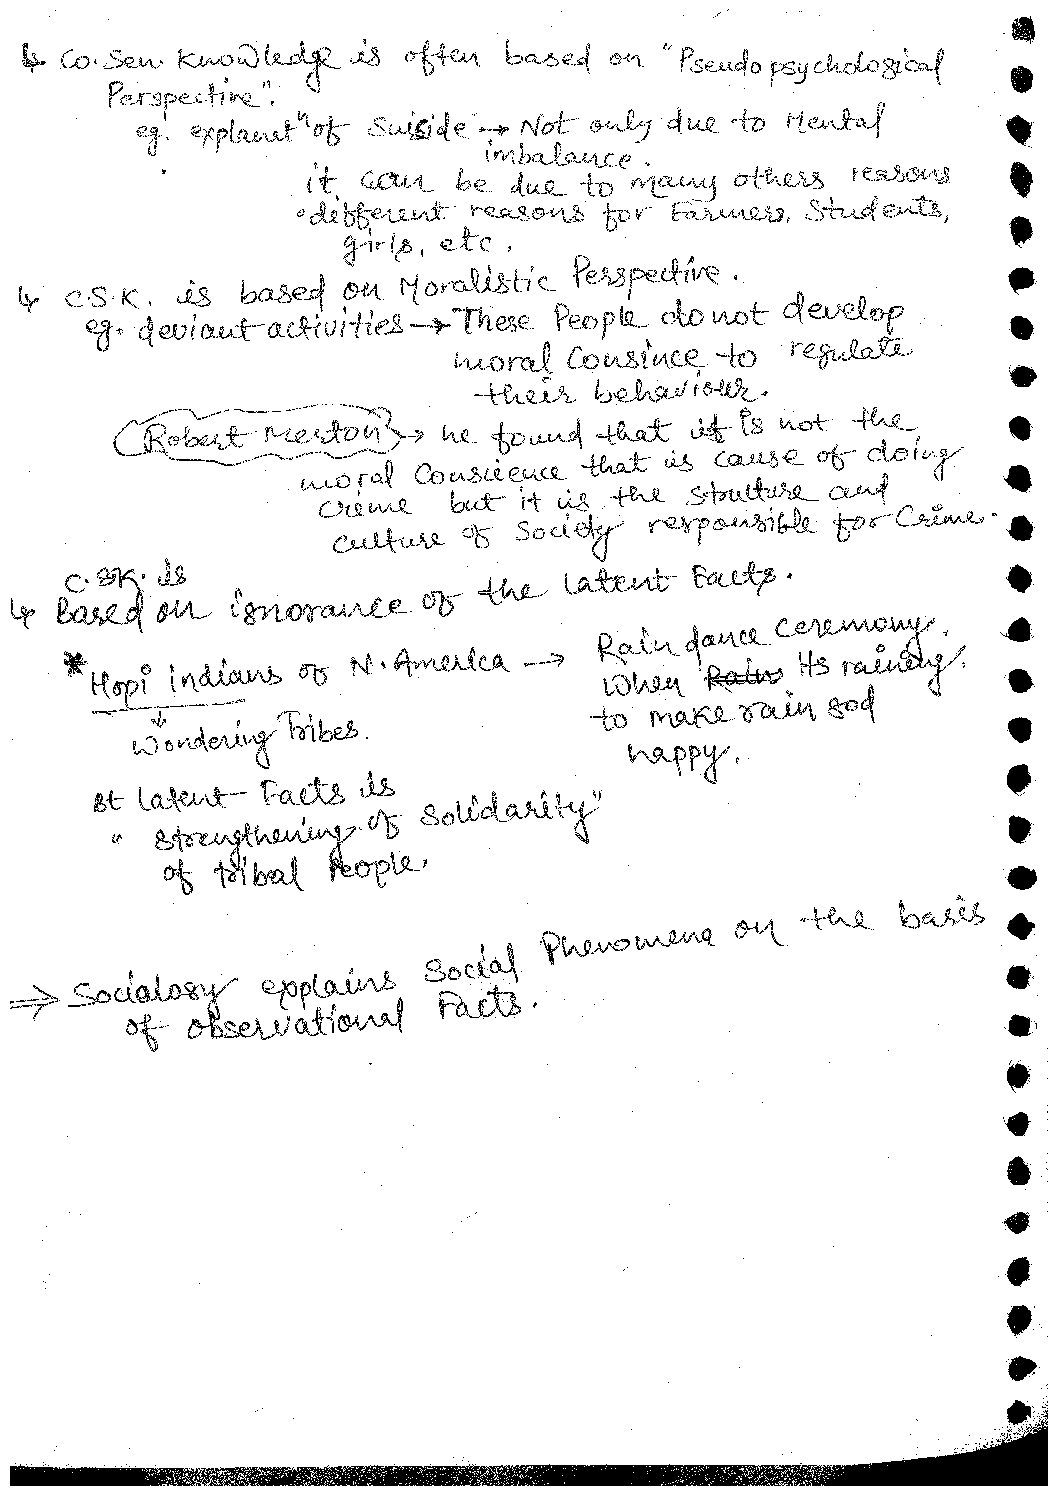 ↳ Co. Sen. Knowledge is often based on "Pseudopsychological
Perspective".
eg. explanatn of Suicide → Not only due to Mental
imbalance.
it can be due to many others reasons
• different reasons for Farmers, Students,
girls, etc.
↳ C.S.K. is based on Moralistic Perspective.
eg. deviant activities → These People do not develop
moral Consince to regulate
their behaviour.
Robert Merton → he found that it is not the
moral Conscience that is cause of doing
Crime but it is the structure and
culture of Society responsible for Crime.
C.SK. is
↳ Based on ignorance of the latent Facts.
* Hopi indians of N. America → Rain dance ceremony.
When Rain Its raining.
to make rain god
happy.
↓
Wondering Tribes.
Bt latent Facts is
" strengthening of Solidarity"
of tribal People.
⇒ Sociology explains Social Phenomena on the basis
of observational Facts.